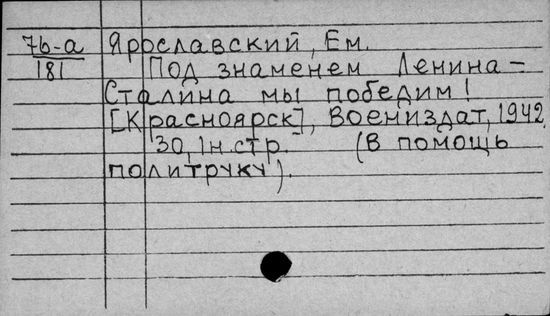 76-а Ярославский, Ем.
181 Под знаменем Ленина-
Сталина мы победим!
[Красноярск], Воениздат, 1942.
30, 1 н. стр. (В помощь
политруку).